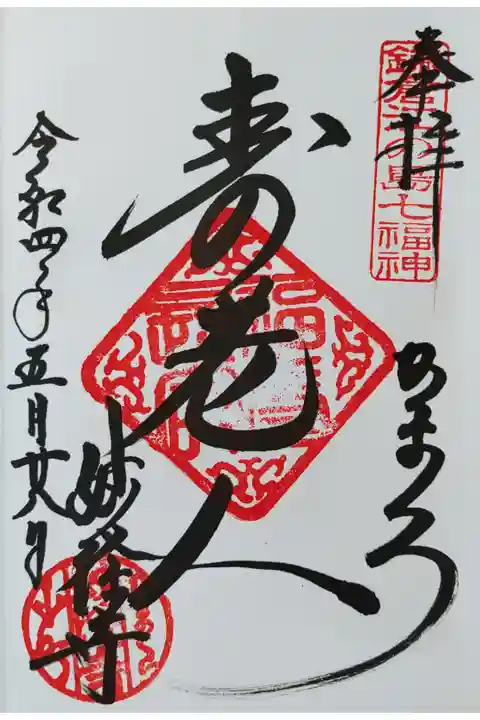 奉拝
鎌倉江の島七福神
かまくら
寿老人
妙隆寺
令和四年五月廿八日